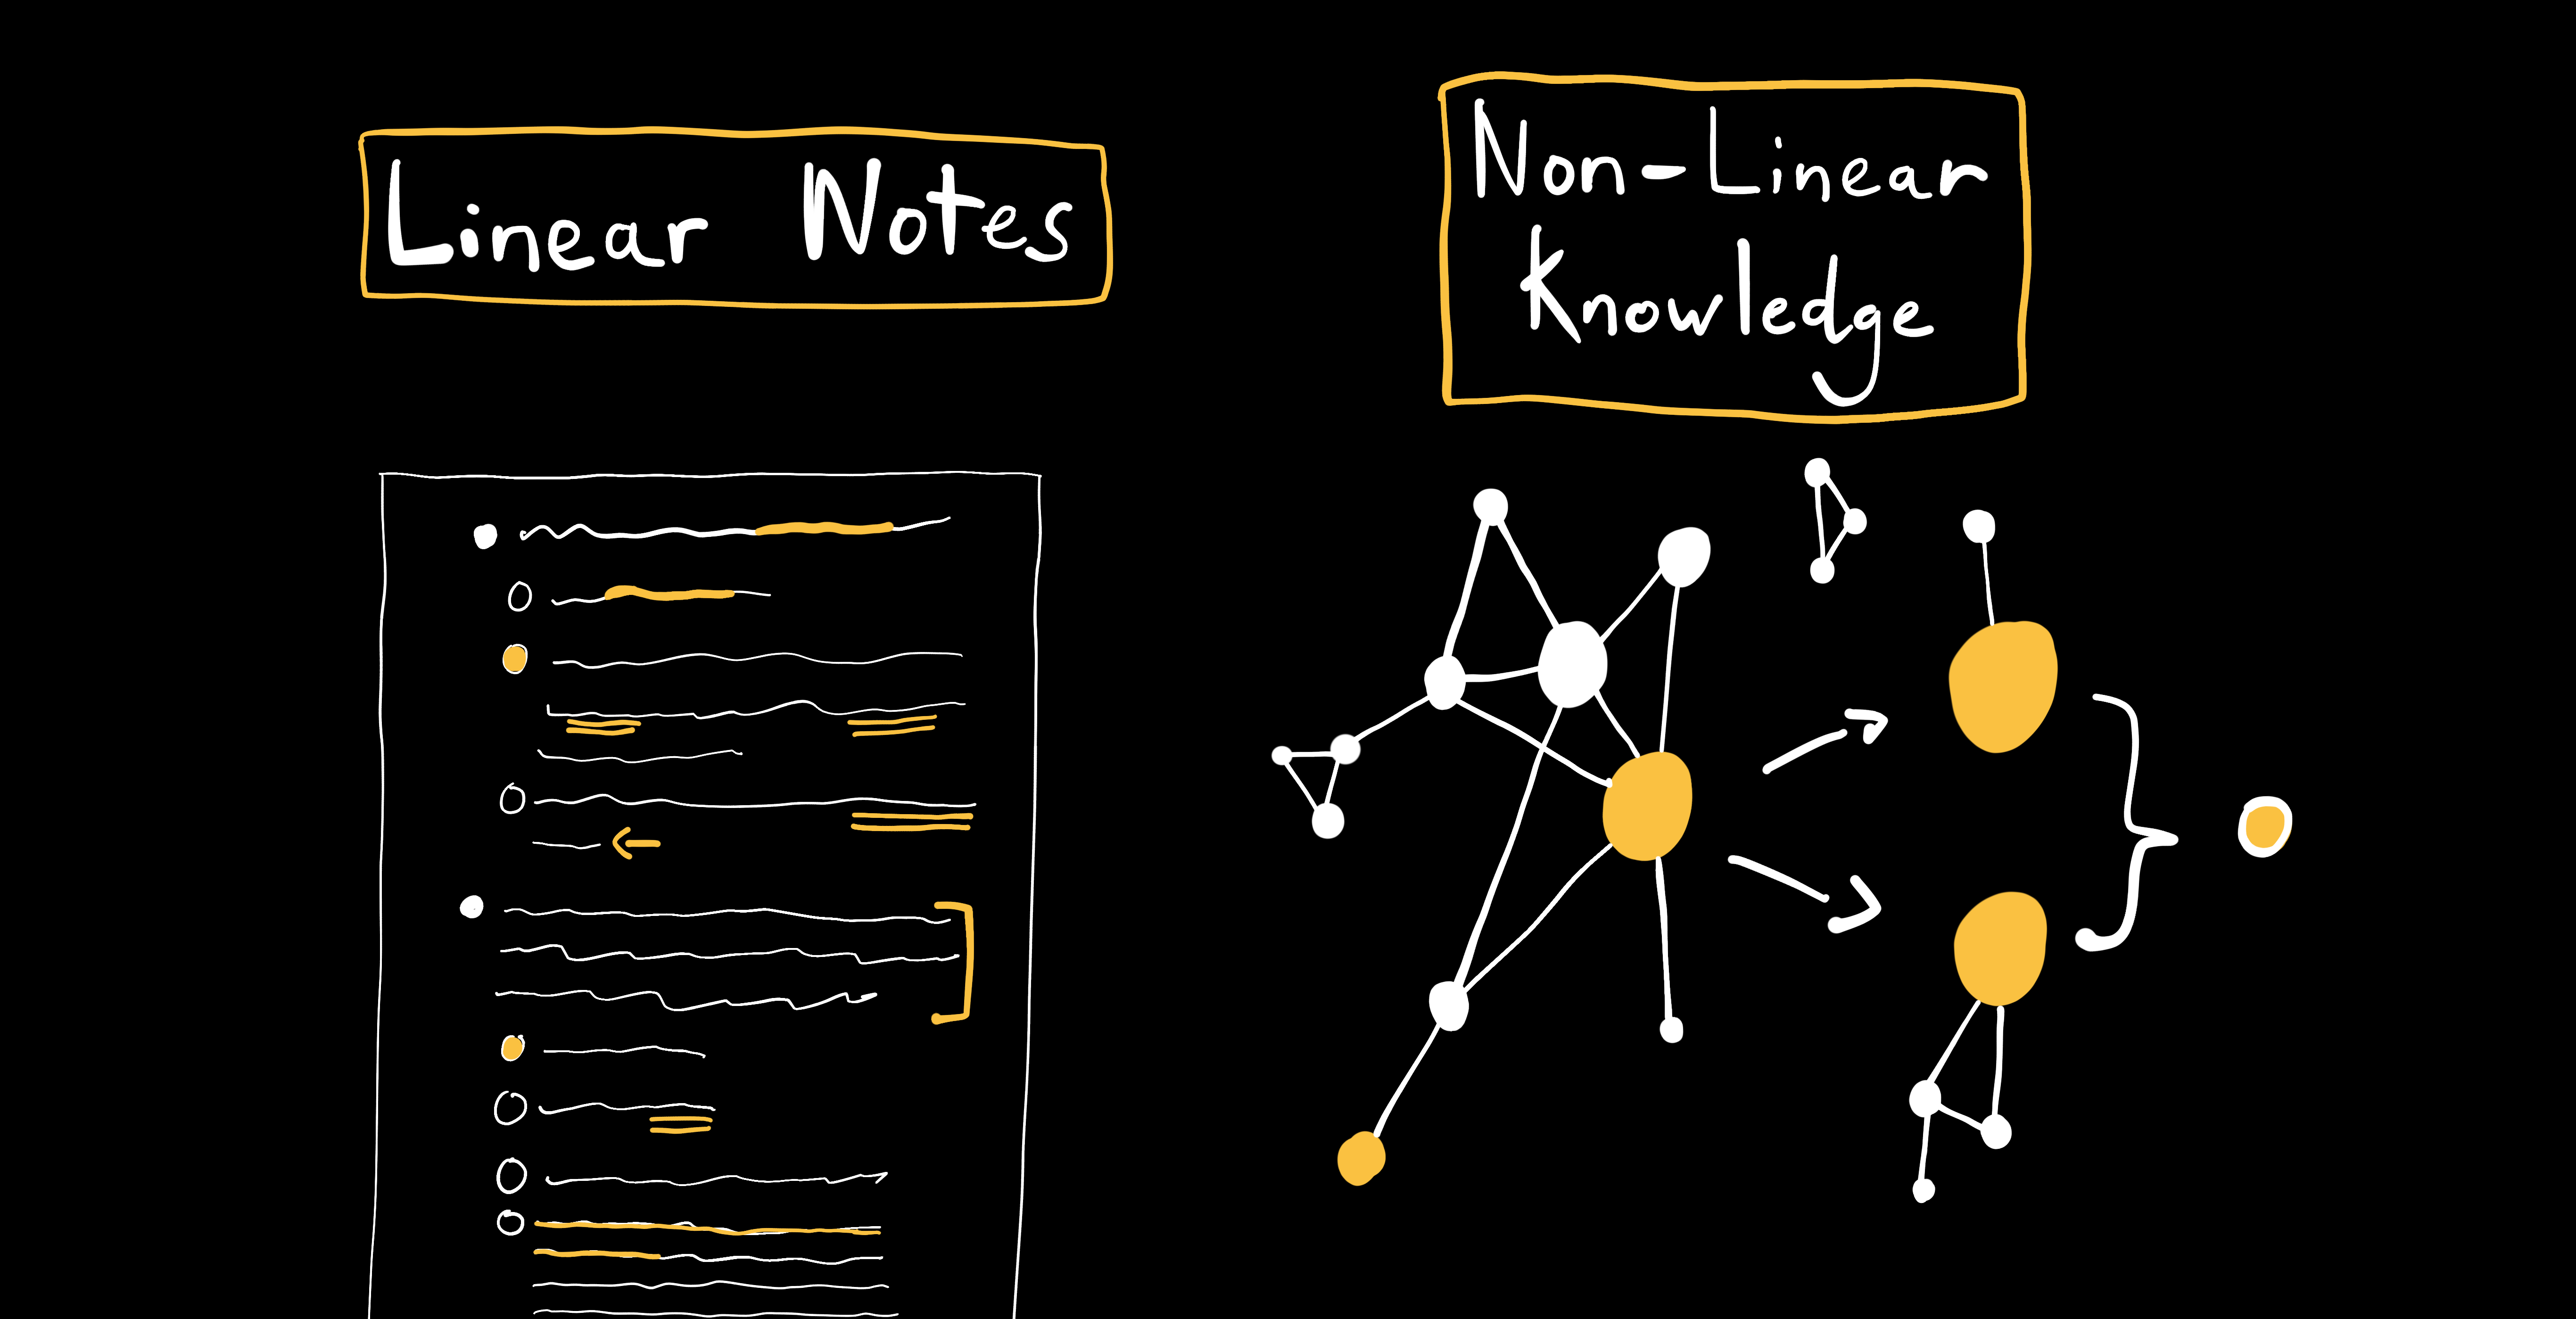 Linear Notes
Non-Linear
Knowledge